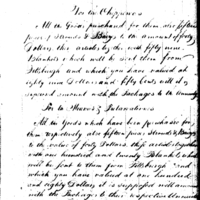 For the Chippewas
All the Goods purchased for them also fifteen
pair of Strouds & to the amount of forty
Dollars this articles by the with fifty nine
Blankets which will be sent them from
Pittsburgh and which you have valued at
eighty nine Dollars and fifty Cents will if
squared amount with the Packages to the Ottaways
For the &
All the Goods which have been purchased for
them respectively also fifteen pair Strouds &
to the value of forty Dollars this articles together
with one hundred and twenty Blankets which
will be sent to them from Pittsburgh and which
you have valued at one hundred
and eighty Dollars it is supposed will amount
with the Packages to their respective